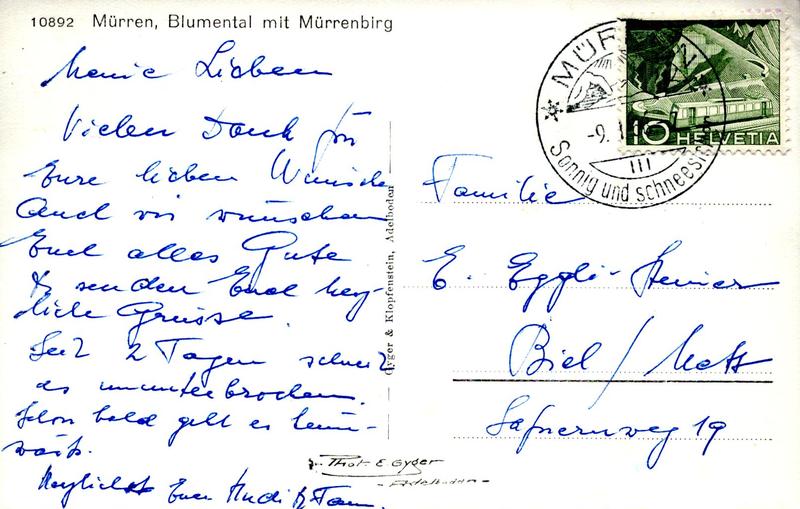 10892 Mürren, Blumental mit Mürrenbirg
Meine Lieben
Vielen Dank für
Eure lieben Wünsche
Auch wir wünschen
Euch alles Gute
& senden Euch herz-
liche Grüsse.
Seit 2 Tagen schneit
es ununterbrochen.
Schon bald geht es heim-
wärts.
Herzlichst Euer Ruedi & Fam.
Gyger & Klopfenstein, Adelboden
Phot. E. Gyger
- Adelboden -
MÜRREN
-9. 1
III
Sonnig und schneesicher
10 HELVETIA
Familie
E. Eggli-
Biel / Mett
Safnernweg 19